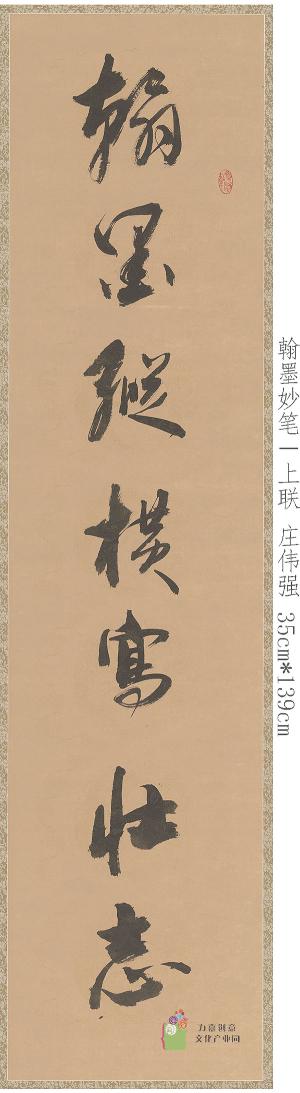 翰墨縱橫寫壮志
翰墨妙笔一上联 庄伟强 35cm*139cm
力意创意
文化产业园